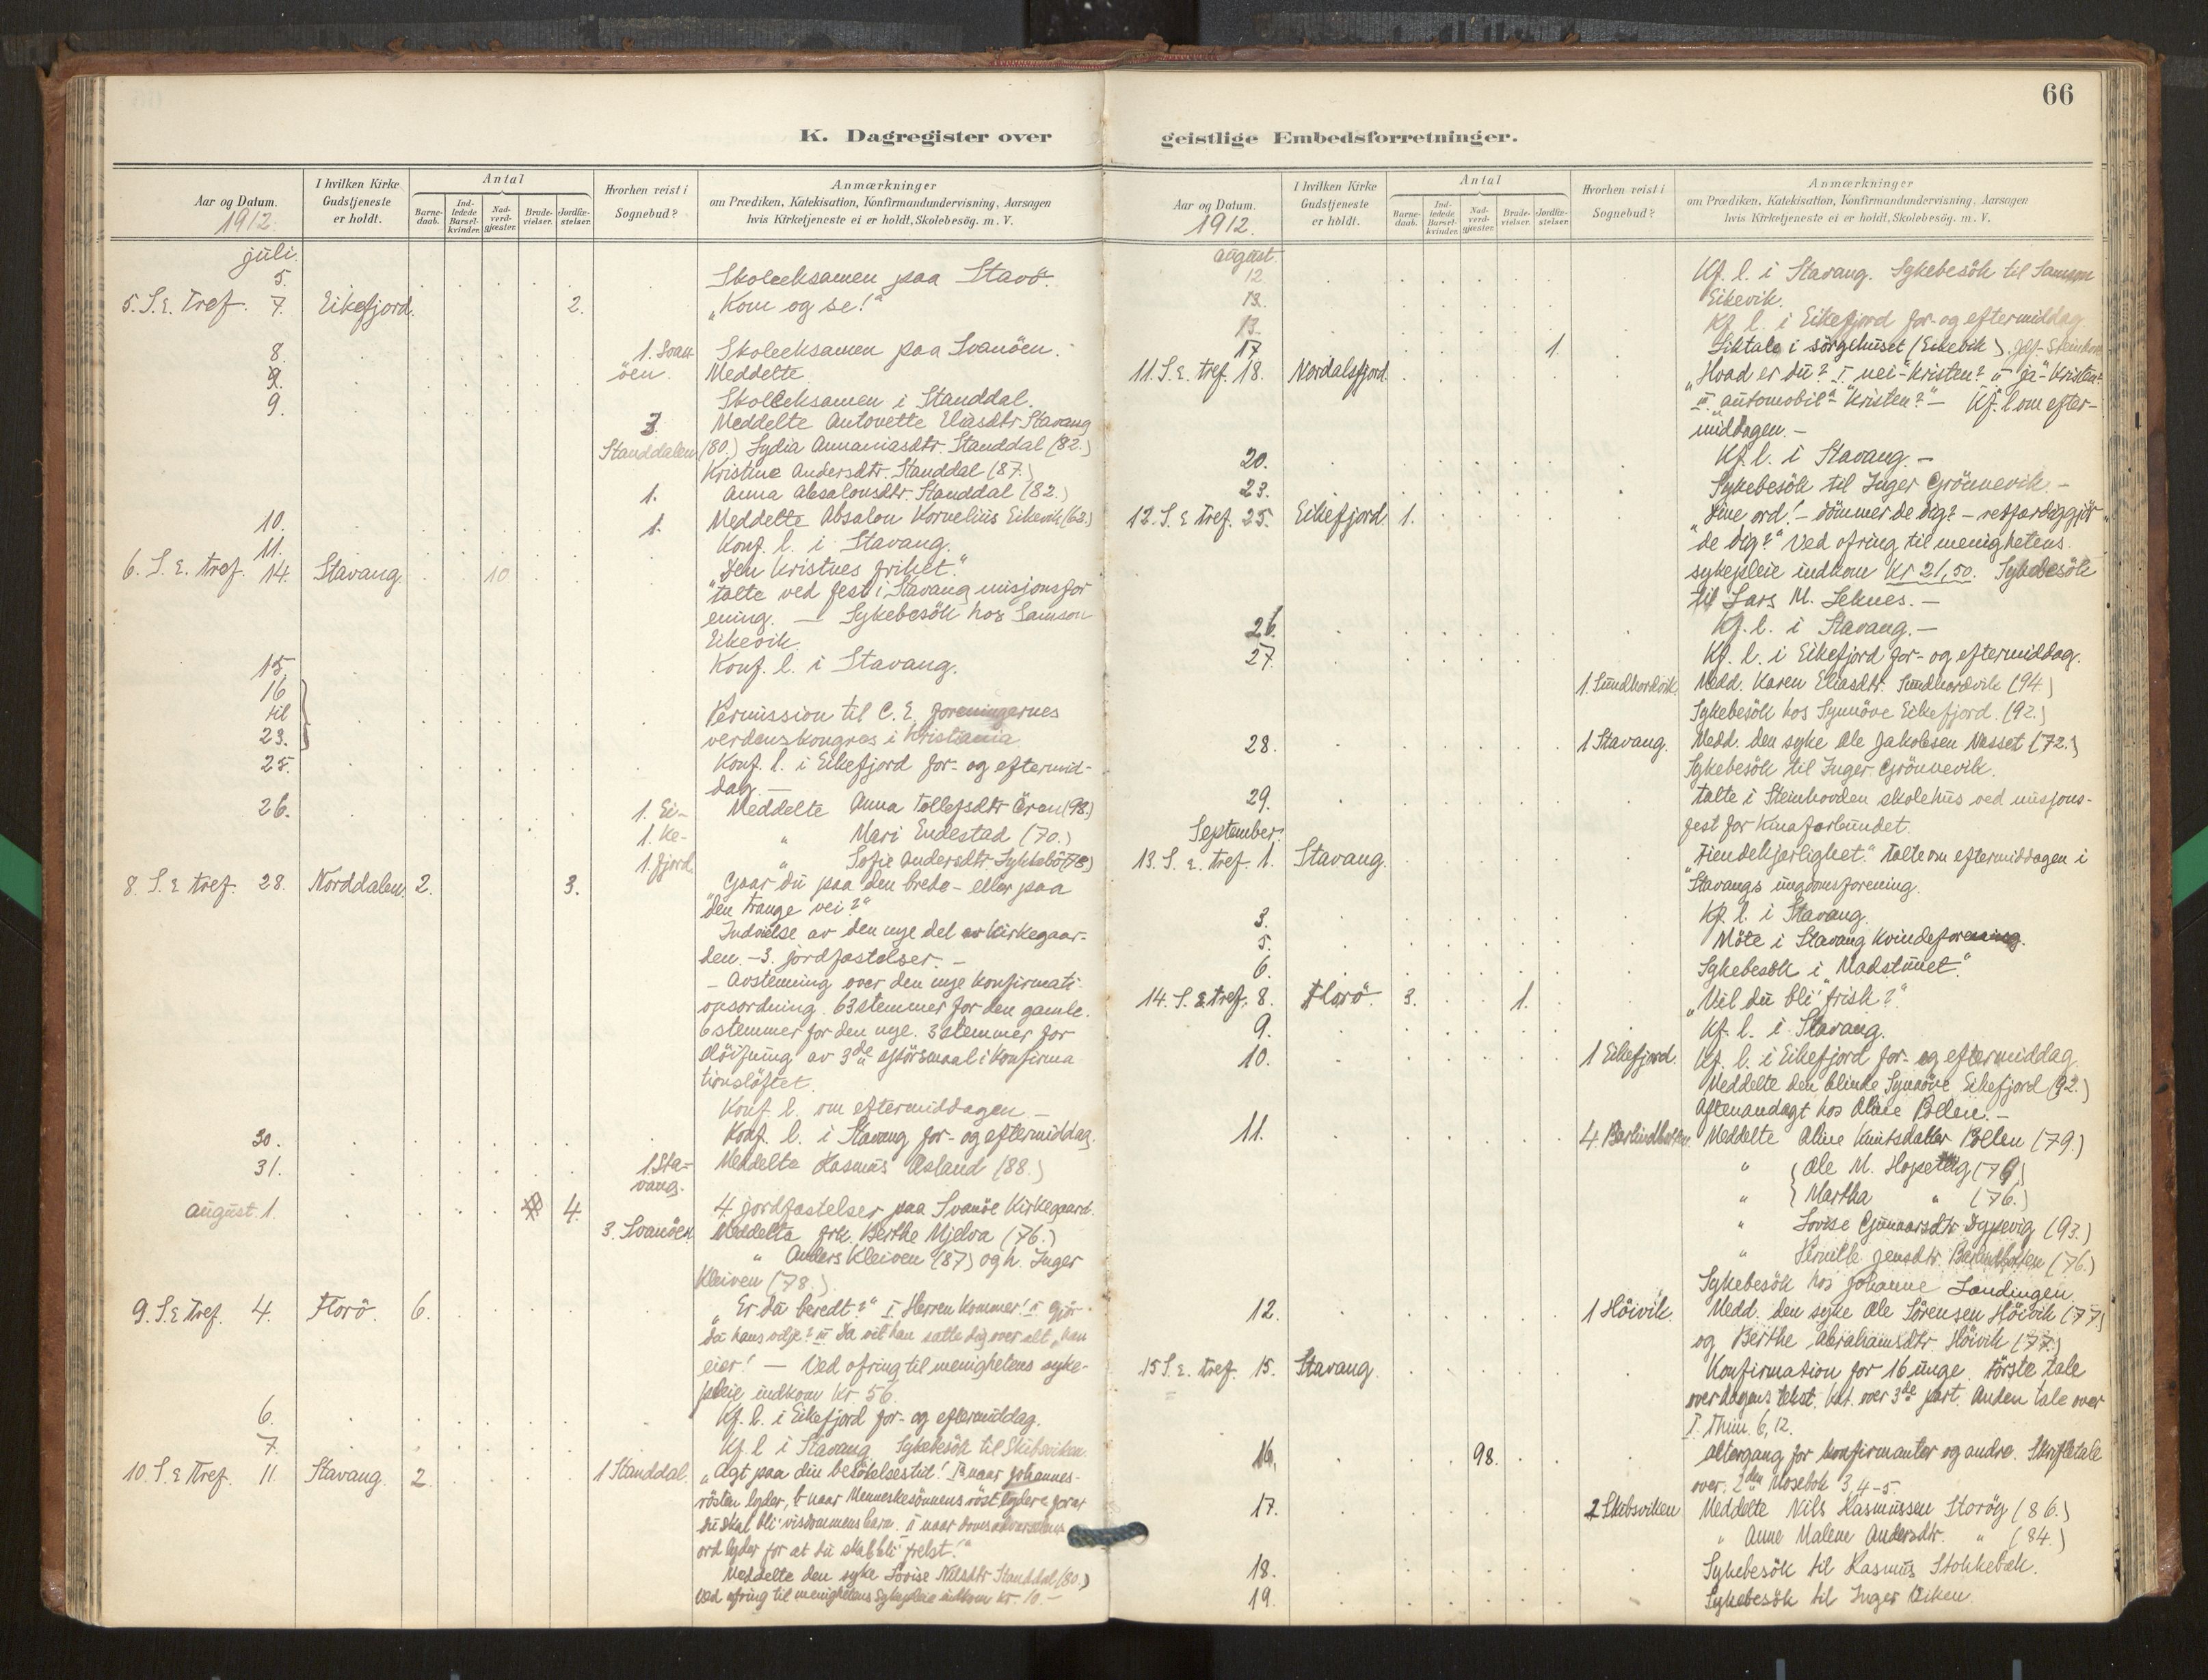 66
K. Dagregister over
geistlige Embedsforretninger.
Aar og Datum.
1912.
I hvilken Kirke Gudstjeneste er holdt.
Antal
Barnedaab.
Indledede Barselkvinder.
Nadverdgjæster.
Brudevielser.
Jordfæstelser.
Hvorhen reist i Sognebud?
Anmærkninger
om Prædiken, Katekisation, Konfirmandundervisning, Aarsagen
hvis Kirketjeneste ei er holdt, Skolebesøg. m. V.
juli.
5. Skoleeksamen paa Stavö.
5. S. E. Tref. 7. Eikefjord. 2. „Kom og se!“
8. 1. Svan- Skoleeksamen paa Svanöen.
9. öen. Meddelte
9. Skoleeksamen i Standdal.
3 Meddelte Antonette Eliasdtr Stavang
Standdalen (80.) Lydia Annaniasdtr. Standdal (82.)
Kristine Andersdtr. Standdal (87.)
1. Anna Absalonsdtr. Standdal (82.)
10. 1. Meddelte Absalon Kornelius Eikevik (63.)
11. Konf. l. i Stavang.
6. S. E. tref. 14. Stavang. 10 „Den kristnes frihet.“
talte ved fest i Stavang misjonsfor
ening. — Sykebesök hos Samson
Eikevik.
15. Konf. l. i Stavang.
16
til Permission til C. E. foreningernes
23. verdenskongres i Kristiania
25. Konf. l. i Eikefjord for- og eftermid-
dag. —
26. 1. Ei- Meddelte Anna Tollefsdtr (98.)
1. ke- „ Mari Endestad (70.)
1. fjord. „ Sofie Andersdtr Sykkebö
8. S. E tref. 28. Norddalen. 2. 3. „Gaar du paa den brede- eller paa
den trange vei?“
Indvielse av den nye del av Kirkegaar-
den. - 3. jordfæstelser. -
- Avstemning over den nye konfirmati-
onsordning. 63 stemmer for den gamle.
6 stemmer for den nye. 3 stemmer for
slöifning av 3de spörsmaal i Konfirma
tionslöftet.
Konf. l. om eftermiddagen. —
30. Konf. l. i Stavang for- og eftermiddag.
31. 1 Sta- Meddelte Rasmus Asland (88.)
vang.
august. 1. 4. 4 jordfæstelser paa Svanöe Kirkegaard.
3. Svanöen. Meddelte frk. Berthe Mjelva (76.)
„ Anders Kleiven (87) og h. Inger
Kleiven (78.)
9. S. E tref. 4. Florö. 6. „Er du beredt?“ I Herren kommer! II gjör
du hans vilje? III Da vil han sætte dig over alt „han
eier! — Ved ofring til menighetens syke-
pleie indkom kr 56.
6. Kf. l. i Eikefjord for- og eftermiddag.
7. Kf. l i Stavang. Sykebesök til Skibsviken.
10. S. E Tref. 11. Stavang. 2. 1 Standdal. „Agt paa din besökelsestid! naar Johannes-
rösten lyder, naar Menneskesönnens röst lyder for at
du skal bli visdommens barn. II naar
ord lyder for at du skal bli frelst!“
Meddelte den syke Lovise Nilsdtr Standdal (80.)
Ved ofring til menighetens Sykepleie indkom kr. 10. -
Aar og Datum.
1912.
I hvilken Kirke Gudstjeneste er holdt.
Antal
Barnedaab.
Indledede Barselkvinder.
Nadverdgjæster.
Brudevielser.
Jordfæstelser.
Hvorhen reist i Sognebud?
Anmærkninger
om Prædiken, Katekisation, Konfirmandundervisning, Aarsagen
hvis Kirketjeneste ei er holdt, Skolebesøg. m. V.
august.
12 Kf. l. i Stavang. Sykebesök til Samson
13. Eikevik.
13. Kf. l. i Eikefjord for- og eftermiddag
17 1. Liktale i sörgehuset (Eikevik).
11. S. E. tref. 18. Nordalsfjord. „Hvad er du? I. „nei“-kristen? II „ja“-kristen?
III „automobil“-kristen?“ — Kf. l om efter-
middagen. -
20. Kf. l. i Stavang. -
23. Sykebesök til Inger Grönnevik. -
12. S. E tref. 25. Eikefjord 1. „Dine ord! - dömmer de dig? - retfærdiggjör
de dig?“ Ved ofring til menighetens
sykepleie indkom Kr 21,50. Sykebesök
til Lars M. Seknes. —
26. Kf. l. i Stavang. —
27. Kf. l. i Eikefjord for- og eftermiddag.
1. Sundhordvik. Medd. Karen Eliasdtr. Sundhordvik (94.)
Sykebesök hos Synnöve Eikefjord. (92.)
28. 1 Stavang. Medd. den syke Ole Jakobsen Nesset (72.)
Sykebesök til Inger Grönnevik.
29. talte i Steinhovden skolehus ved misjons-
September. fest for Kinaforbundet.
13. S. E. tref. 1. Stavang. „Fiendekjærlighet.“ Talte om eftermiddagen i
Stavangs ungdomsforening.
3. Kf. l. i Stavang.
5. Möte i Stavang Kvindeforening.
6. Sykebesök i „Madstunet“.
14. S. E tref. 8. Florö. 3. 1. „Vil du bli frisk?“
9. Kf. l. i Stavang.
10. 1 Eikefjord. Kf. l. i Eikefjord for- og eftermiddag
Meddelte den blinde Synnöve Eikefjord (92.)
Aftenandagt hos Oline Pollen. -
11. 4 Barlindbotten. Meddelte Oline Knutsdatter Pollen (79.)
„ Ole M. Hopetug (79)
„ Martha „ (76.)
„ Lovise Gunnarsdtr Dypevig (93.)
„ Pernille Jensdtr. Barlindbotten (76.)
Sykebesök hos Johanne Landingen
12. 1 Höivik. Medd. den syke Ole Sörensen Höivik (77.)
og Berthe Abrahamsdtr. Höivik (77.)
15 S. E. tref. 15. Stavang. Konfirmation for 16 unge. Förste tale
over dagens tekst. Kat. over 3de part. Anden tale over
I. Thim. 6,12.
16. 98. Altergang for konfirmanter og andre. Skriftetale
over. 2den Mosebok 3,4-5.
17. 2 Skibsviken Meddelte Nils Rasmussen Storöy (86.)
„ Anne Malene Andersdtr. „ (84.)
18. Sykebesök til Rasmus Stokkebæk.
19. Sykebesök til Inger Eiken.